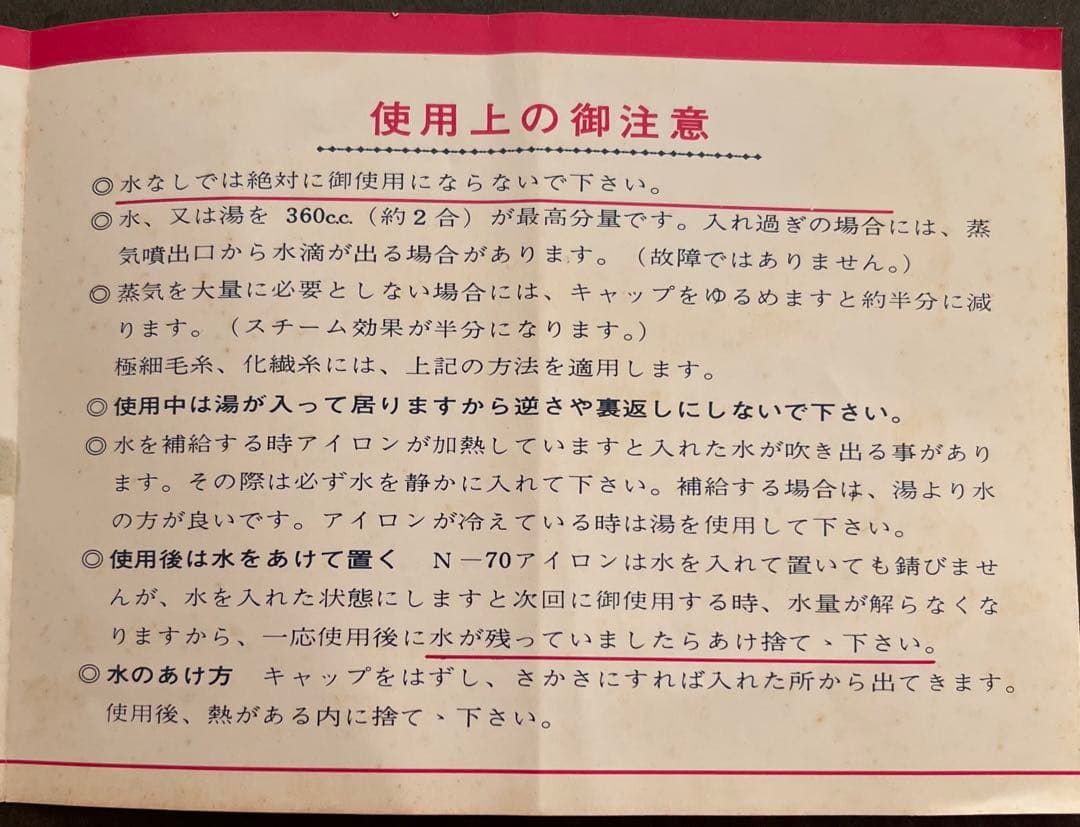 使用上の御注意
◎水なしでは絶対に御使用にならないで下さい。
◎水、又は湯を 360c.c.（約２合）が最高分量です。入れ過ぎの場合には、蒸
気噴出口から水滴が出る場合があります。（故障ではありません。）
◎蒸気を大量に必要としない場合には、キャップをゆるめますと約半分に減
ります。（スチーム効果が半分になります。）
極細毛糸、化繊糸には、上記の方法を適用します。
◎使用中は湯が入って居りますから逆さや裏返しにしないで下さい。
◎水を補給する時アイロンが加熱していますと入れた水が吹き出る事があり
ます。その際は必ず水を静かに入れて下さい。補給する場合は、湯より水
の方が良いです。アイロンが冷えている時は湯を使用して下さい。
◎使用後は水をあけて置く　Ｎ－70アイロンは水を入れて置いても錆びませ
んが、水を入れた状態にしますと次回に御使用する時、水量が解らなくな
りますから、一応使用後に水が残っていましたらあけ捨てゝ下さい。
◎水のあけ方　キャップをはずし、さかさにすれば入れた所から出てきます。
使用後、熱がある内に捨てゝ下さい。